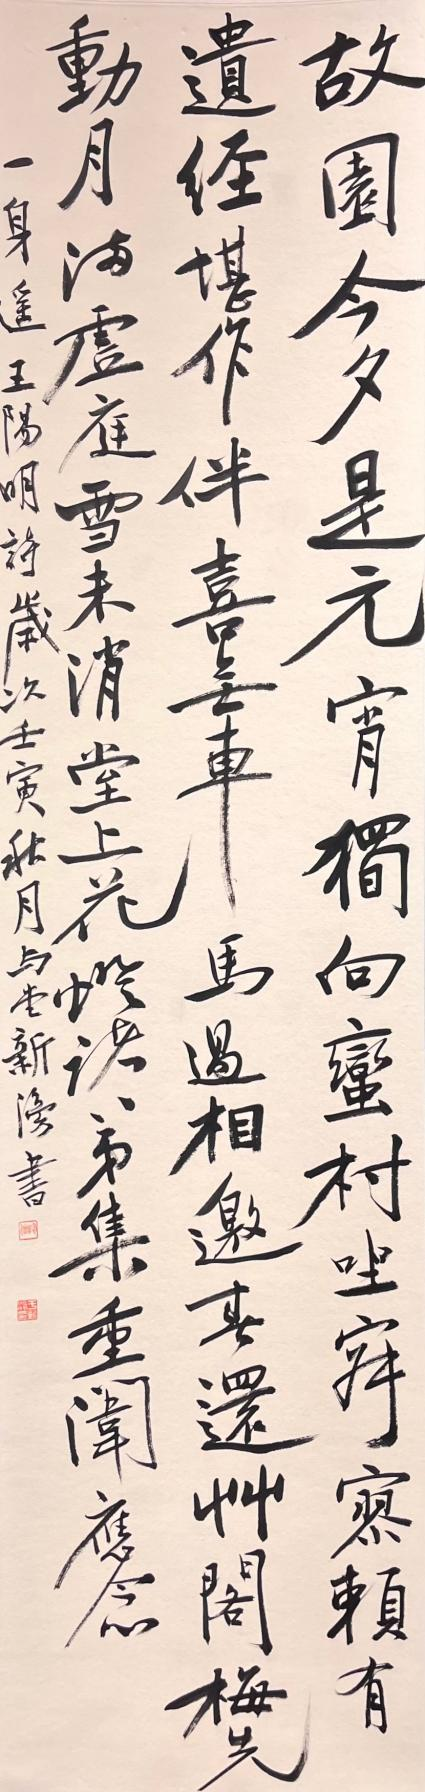 故園今夕是元宵獨向蠻村坐寂寥賴有
遺經堪作伴喜無車馬過相邀春還草閣梅先
動月滿虛庭雪未消堂上花燈諸弟集重闈應念
一身遙王陽明詩歲次壬寅秋月新漫書